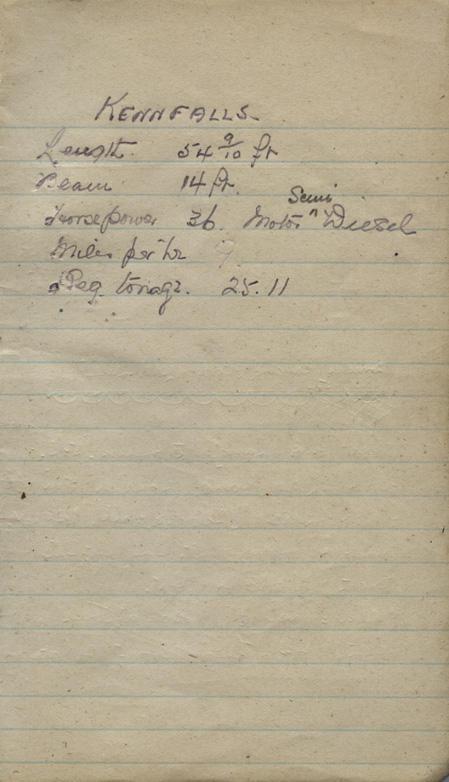 KENNFALLS
Length 54 9/10 ft
Beam 14 ft.
Semi
Horsepower 36. Motor ^ Diesel
Miles per hr 9.
Reg. tonage. 25.11